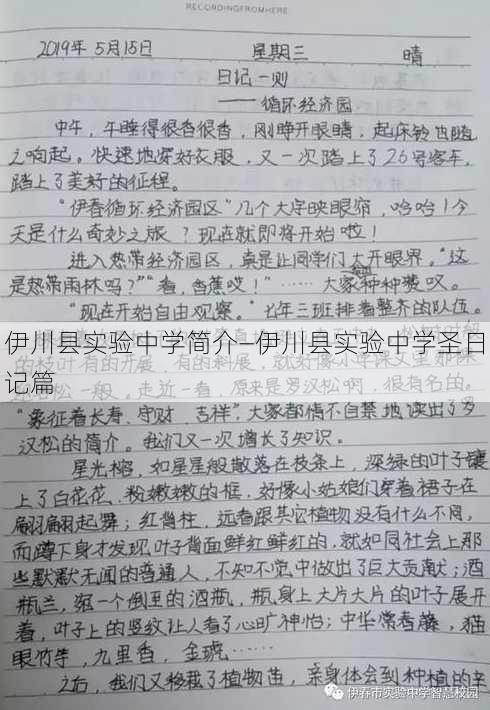 RECORDINGFROMHERE
2019年5月15日 星期三 晴
日记一则
——循环经济园
中午，午睡得很香很香，刚睁开眼睛，起床铃也随
之响起。快速地穿好衣服，又一次踏上了26号客车，
踏上了美好的征程。
"伊春循环经济园区"几个大字映眼帘，哈哈！今
天是什么奇妙之旅？现在就即将开始啦！
进入热带经济园区，真是让同学们大开眼界。"这
是热带雨林吗？""看，香蕉哎！"……大家种种赞叹。
"现在开始自由观察。"七年三班排着整齐的队伍。
伊川县实验中学简介—伊川县实验中学圣日
记篇
的枝叶有的开展，有的斜展，就好像小学课文里
松一般。走近一看，原来是罗汉松啊，很有名的。
"象征着长寿、守财、吉祥"，大家都情不自禁地读出了罗
汉松的简介。我们又一次增长了知识。
星光榕，如星星般散落在枝条上，深绿的叶子镶
上了白花花、粉嫩嫩的框，好像小姑娘们穿着裙子在
翩翩起舞；红背桂，远看跟其它植物没有什么不同，
而蹲下身才发现叶子背面鲜红鲜红的，就如同社会上那
些默默无闻的普通人，不知不觉中做出了巨大贡献；酒
瓶兰，宛一个倒立的酒瓶，瓶身上大片大片的叶子展开
着，叶子上的竖纹让人看了心旷神怡；中华常春藤，猫
眼竹芋，九里香，金琥……
之后，我们又移栽了植物苗，亲身体会到种植的辛
伊春市实验中学智慧校园